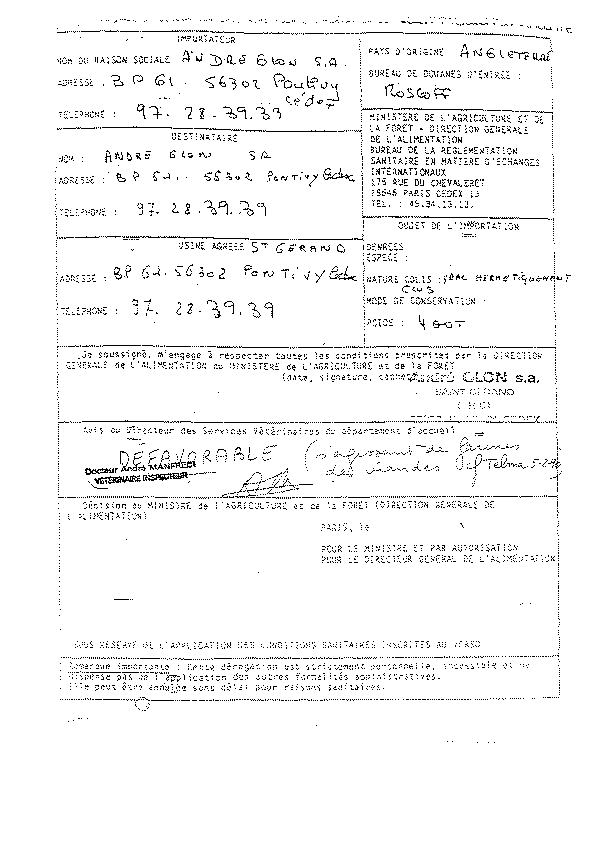 IMPORTATEUR
NOM OU RAISON SOCIALE ANDRE GLON S.A.
ADRESSE : BP 61 - 56302 Pontivy
Cédex
TELEPHONE : 97. 28. 39. 39
DESTINATAIRE
NOM : ANDRE GLON SA
ADRESSE : BP 62 - 56302 PONTIVY Cedex
TELEPHONE : 97. 28. 39. 39
USINE AGREEE ST GERAND
ADRESSE : BP 62. 56302 PONTIVY Cedex
TELEPHONE : 97. 28. 39. 39
PAYS D'ORIGINE ANGLETERRE
BUREAU DE DOUANES D'ENTREE :
ROSCOFF
MINISTERE DE L'AGRICULTURE ET DE
LA FORET - DIRECTION GENERALE
DE L'ALIMENTATION
BUREAU DE LA REGLEMENTATION
SANITAIRE EN MATIERE D'ECHANGES
INTERNATIONAUX
175 RUE DU CHEVALERET
75646 PARIS CEDEX 13
TEL. :
OBJET DE L'IMPORTATION
DENREES
ESPECE :
NATURE COLIS : HERMETIQUEMENT
CLOS
MODE DE CONSERVATION :
POIDS : 400T
Je soussigné, m'engage à respecter toutes les conditions prescrites par la DIRECTION
GENERALE de l'ALIMENTATION au MINISTERE de l'AGRICULTURE et de la FORET
(date, signature, GLON s.a.
SAINT GERAND
Avis du Directeur des Services Vétérinaires du département d'accueil
DEFAVORABLE (s'agissant de farines
Docteur André MANFREDI de viandes Telma
VETERINAIRE INSPECTEUR
Décision du MINISTRE de l'AGRICULTURE et de la FORET (DIRECTION GENERALE DE
L'ALIMENTATION)
PARIS, le
POUR LE MINISTRE ET PAR AUTORISATION
POUR LE DIRECTEUR GENERAL DE L'ALIMENTATION
SOUS RESERVE DE L'APPLICATION DES CONDITIONS SANITAIRES INSCRITES AU VERSO
Remarque importante : Cette dérogation est strictement personnelle, incessible et ne
dispense pas de l'application des autres formalités administratives.
Elle peut être annulée sans délai pour raisons sanitaires.